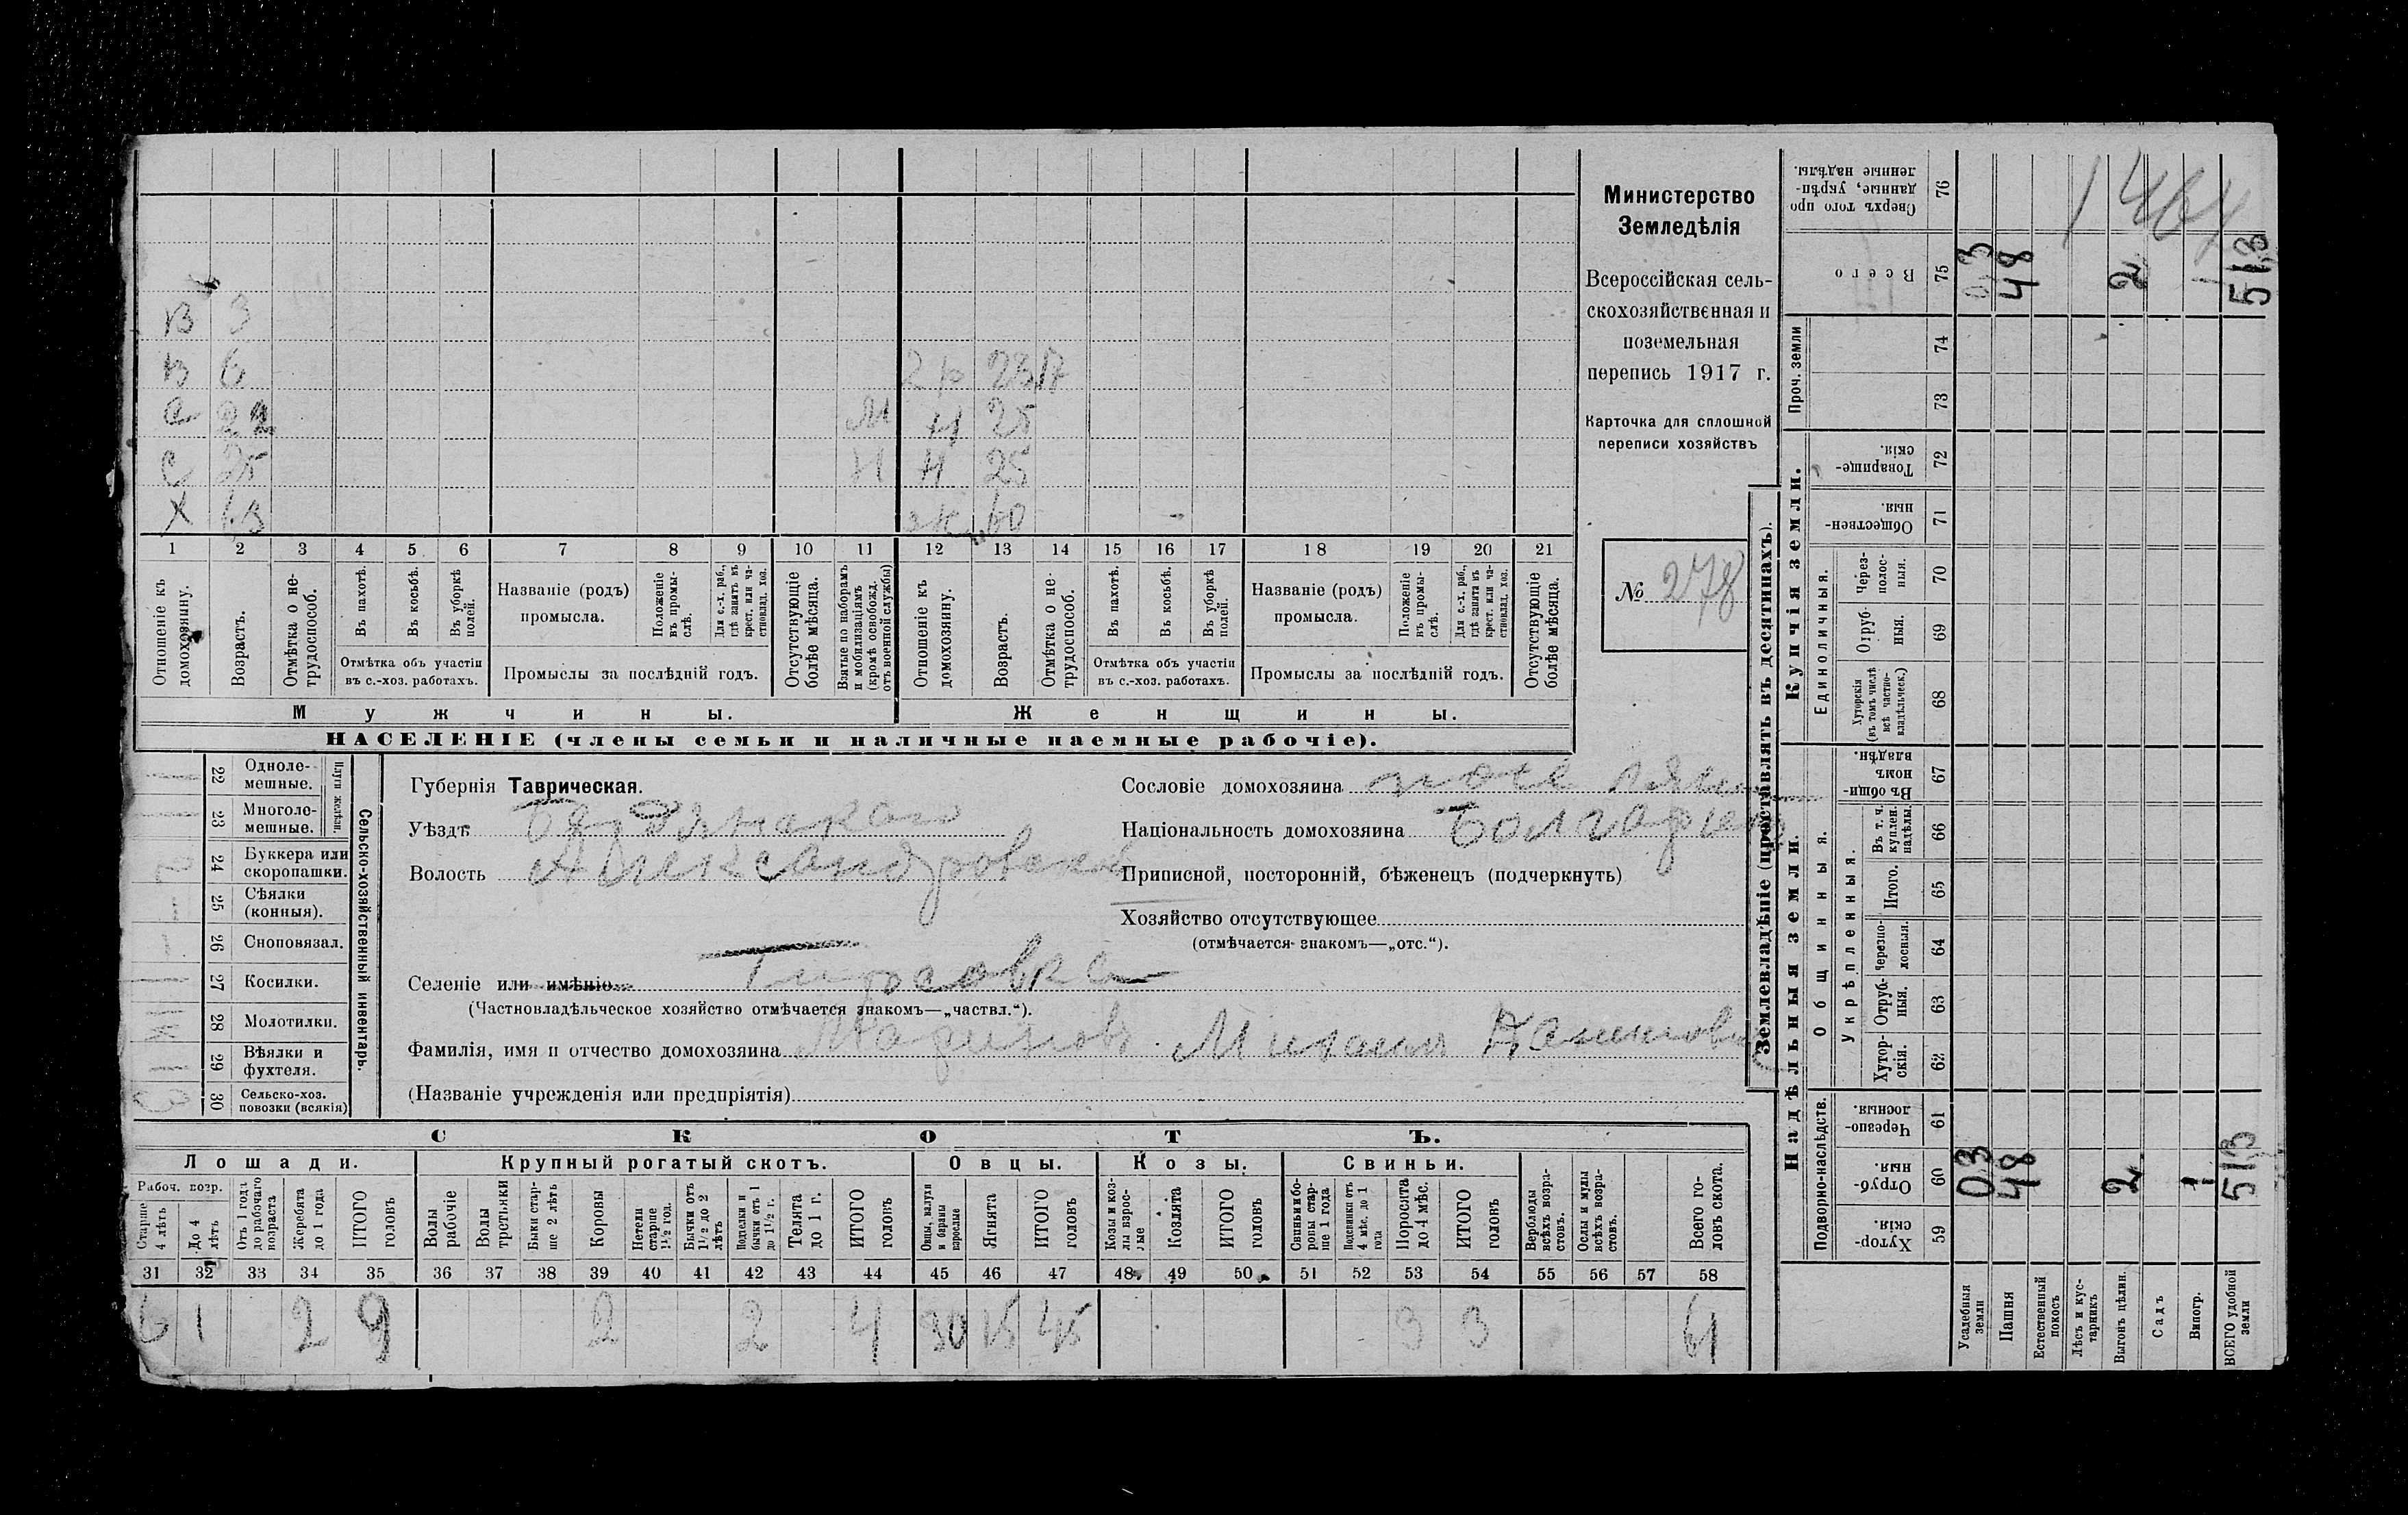 Министерство
Земледѣлія
Всероссійская сель-
скохозяйственная и
поземельная
перепись 1917 г.
Карточка для сплошной
переписи хозяйствъ
№ 278
В 3
В 6 23
С 22 М Н 25
С 25 Н Н 25
Х 63 ж 60
1 2 3 4 5 6 7 8 9 10 11 12 13 14 15 16 17 18 19 20 21
Отношеніе къ домохозяину.
Возрастъ.
Отмѣтка о не-трудоспособ.
Въ пахотѣ.
Въ косьбѣ.
Въ уборкѣ полей.
Отмѣтка объ участіи
въ с.-хоз. работахъ.
Названіе (родъ)
промысла.
Положеніе въ промы-слѣ.
Для с.-х. раб., гдѣ занятъ въ крест. или ча-стновлад. хоз.
Промыслы за послѣдній годъ.
Отсутствующіе болѣе мѣсяца.
Взятые по наборамъ и мобилизаціямъ (кромѣ освобожд. отъ военной службы)
Отношеніе къ домохозяину.
Возрастъ.
Отмѣтка о не-трудоспособ.
Въ пахотѣ.
Въ косьбѣ.
Въ уборкѣ полей.
Отмѣтка объ участіи
въ с.-хоз. работахъ.
Названіе (родъ)
промысла.
Положеніе въ промы-слѣ.
Для с.-х. раб., гдѣ занята въ крест. или ча-стновлад. хоз.
Промыслы за послѣдній годъ.
Отсутствующіе болѣе мѣсяца.
Мужчины.
Женщины.
НАСЕЛЕНІЕ (члены семьи и наличные наемные рабочіе).
22 Одноле-мешные.
23 Многоле-мешные.
Плуги желѣзн.
24 Буккера или скоропашки.
25 Сѣялки (конныя).
26 Сноповязал.
27 Косилки.
28 Молотилки.
29 Вѣялки и фухтеля.
30 Сельско-хоз. повозки (всякія)
Сельско-хозяйственный инвентарь.
Губернія Таврическая.
Уѣздъ Бердянскаго
Волость Александровская
Селеніе или имѣніе Гирсовка
(Частновладѣльческое хозяйство отмѣчается знакомъ—„частвл.“).
Фамилія, имя и отчество домохозяина Маринов Михаил
(Названіе учрежденія или предпріятія)
Сословіе домохозяина
Національность домохозяина Болгарин
Приписной, посторонній, бѣженецъ (подчеркнуть)
Хозяйство отсутствующее
(отмѣчается знакомъ—„отс.“).
СКОТЪ.
Лошади.
Крупный рогатый скотъ.
Овцы.
Козы.
Свиньи.
Рабоч. возр.
Старше 4 лѣтъ
До 4 лѣтъ
Отъ 1 года до рабочаго возраста
Жеребята до 1 года
ИТОГО головъ
Волы рабочіе
Волы третьяки
Быки стар-ше 2 лѣтъ
Коровы
Нетели старше 1½ год.
Бычки отъ 1½ до 2 лѣтъ
Подтелки и бычки отъ 1 до 1½ г.
Телята до 1 г.
ИТОГО головъ
Овцы, валухи и бараны взрослые
Ягнята
ИТОГО головъ
Козы и коз-лы взрос-лые
Козлята
ИТОГО головъ
Свиньи и бо-ровы стар-ше 1 года
Подсвинки отъ 4 мѣс. до 1 года
Поросята до 4 мѣс.
ИТОГО головъ
Верблюды всѣхъ возра-стовъ.
Ослы и мулы всѣхъ возра-стовъ.
Всего го-ловъ скота.
31 32 33 34 35 36 37 38 39 40 41 42 43 44 45 46 47 48 49 50 51 52 53 54 55 56 57 58
6 1 2 9 2 2 4 30 15 45 3 3 61
Землевладѣніе (проставлять въ десятинахъ).
Надѣльныя земли.
Купчія земли.
Проч. земли
Подворно-наслѣдств.
Общинныя.
Укрѣпленныя.
Единоличныя.
Хутор-скія. 59
Отруб-ныя. 60
Черезпо-лосныя. 61
Хутор-скія. 62
Отруб-ныя. 63
Черезпо-лосныя. 64
Итого. 65
Въ т. ч. куплен. надѣлы. 66
Въ общи-номъ владѣн. 67
Хуторскія (въ томъ числѣ всѣ частно-владѣльческ.) 68
Отруб-ныя. 69
Через-полос-ныя. 70
Обществен-ныя. 71
Товарище-скія. 72
73
74
Всего 75
Сверхъ того про-данные, укрѣп-ленные надѣлы. 76
Усадебныя земли 03 03
Пашня 48 48
Естественный покосъ
Лѣсъ и кус-тарникъ
Выгонъ цѣлин. 2 2
Садъ
Виногр. 1 1
ВСЕГО удобной земли 513 513